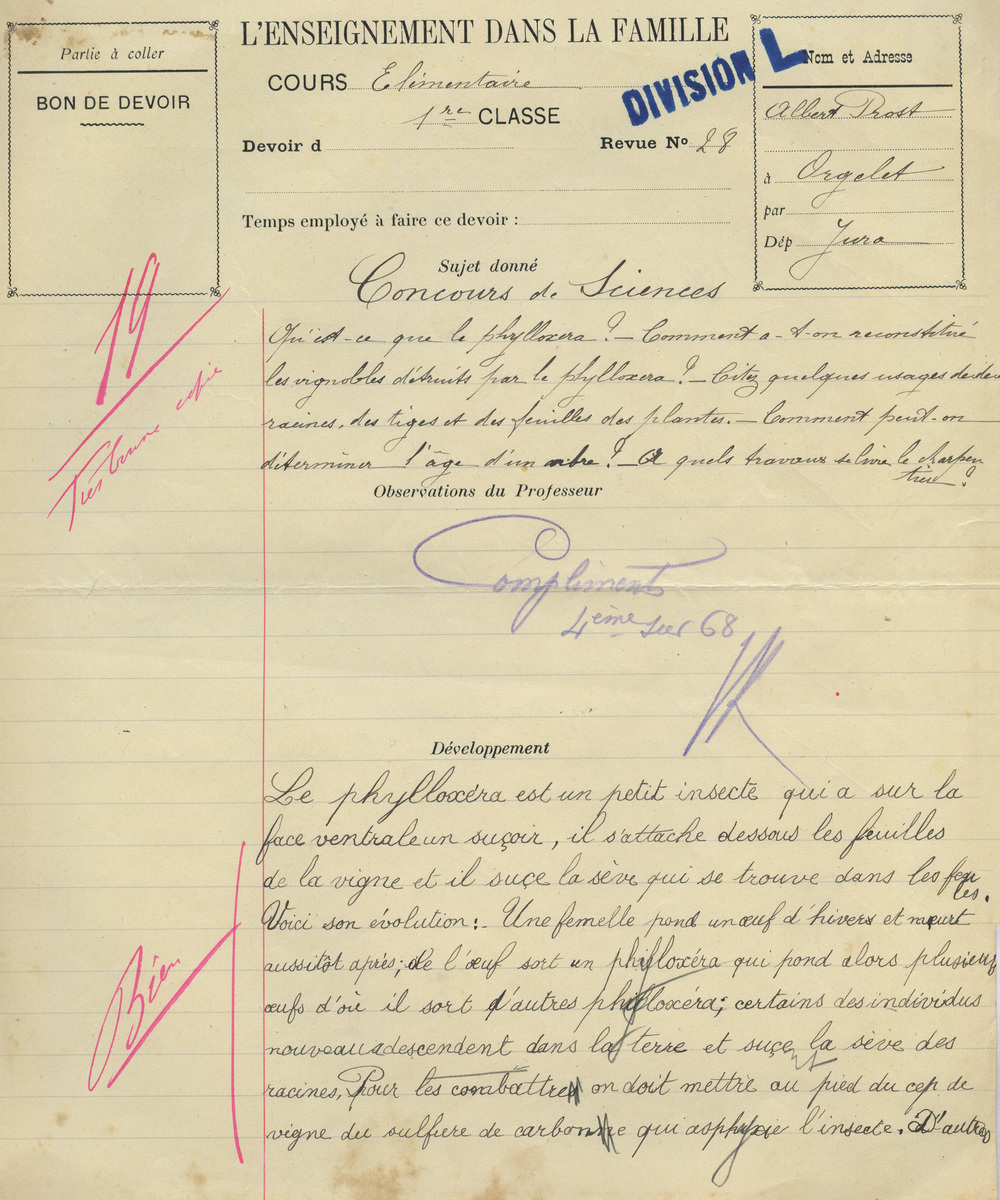 Partie à coller
BON DE DEVOIR
L'ENSEIGNEMENT DANS LA FAMILLE
COURS Elémentaire
1re CLASSE
DIVISION L
Devoir d
Revue No 28
Temps employé à faire ce devoir :
Nom et Adresse
Albert Prost
à Orgelet
par
Dép Jura
Sujet donné
Concours de Sciences
19
Très bonne copie
Qu'est-ce que le phylloxera ? — Comment a-t-on reconstitué
les vignobles détruits par le phylloxera ? — Citez quelques usages des
racines, des tiges et des feuilles des plantes. — Comment peut-on
déterminer l'âge d'un arbre ? — A quels travaux se livre le charpen
tier ?
Observations du Professeur
Compliment
4ème sur 68
Développement
Le phylloxéra est un petit insecte qui a sur la
face ventrale un suçoir, il s'attache dessous les feuilles
de la vigne et il suçe la sève qui se trouve dans les feuil
les.
Voici son évolution : Une femelle pond un œuf d'hivers et meurt
aussitôt après; de l'œuf sort un phylloxéra qui pond alors plusieurs
œufs d'où il sort d'autres phylloxéra; certains des individus
nouveaux descendent dans la terre et suçe la sève des
racines. Pour les combattre on doit mettre au pied du cep de
vigne du sulfure de carbone qui asphyxie l'insecte. D'autres
Bien